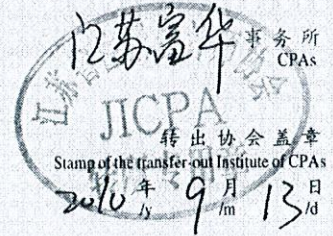 江苏富华 事务所
CPAs
JICPA
转出协会盖章
Stamp of the transfer-out Institute of CPAs
2010 年 9 月 13 日
/y /m /d